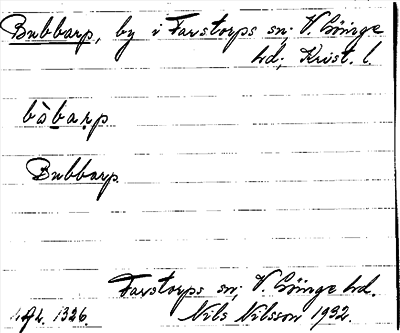 Bubbarp, by i Farstorps sn; V. Göinge
hd; Krist. l.
bòbarp
Bubbarp
Farstorps sn; V. Göinge hd.
1326. Nils Nilsson 1922.